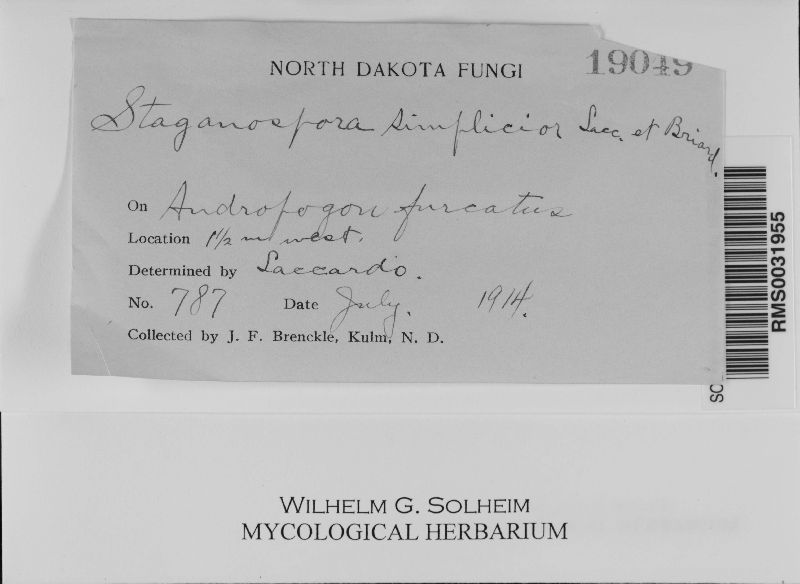 NORTH DAKOTA FUNGI 19049
Staganospora simplicior Sacc. et Briard.
On Andropogon furcatus
Location 1 1/2 m west.
Determined by Saccardo.
No. 787 Date July. 1914.
Collected by J. F. Brenckle, Kulm, N. D.
RMS0031955
SO
WILHELM G. SOLHEIM
MYCOLOGICAL HERBARIUM